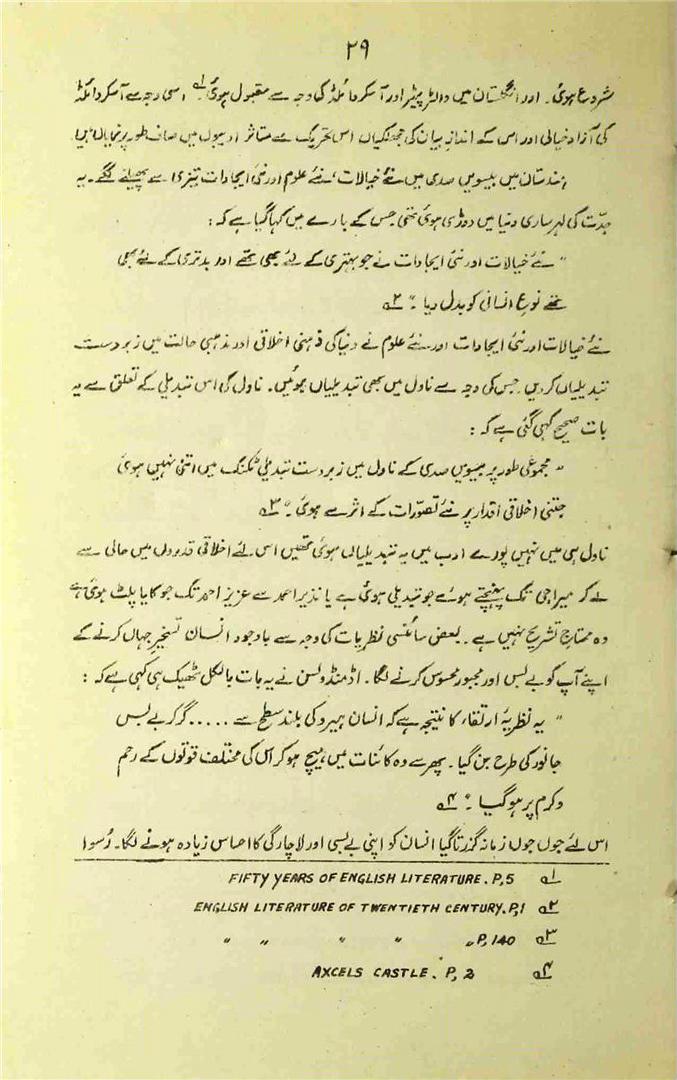 ۲۹
شروع ہوئی۔ اور انگلستان میں والٹر پیٹر اور آسکر وائلڈ کی وجہ سے مقبول ہوئی۔ ؎۱ اسی وجہ سے آسکر وائلڈ
کی آزاد خیالی اور اس کے اندازِ بیان کی جھلکیاں اس تحریک سے متاثر ادیبوں میں صاف طور پر نمایاں ہیں۔
ہندستان میں بیسویں صدی میں نئے خیالات، نئے علوم اور نئی ایجادات تیزی سے پھیلنے لگے۔ یہ
جدّت کی لہر ساری دنیا میں دوڑی ہوئی تھی جس کے بارے میں کہا گیا ہے کہ :
" نئے خیالات اور نئی ایجادات نے جو بہتری کے لئے بھی تھے اور بدتری کے لئے بھی
تھے نوعِ انسانی کو بدل دیا ۔" ؎۲
نئے خیالات اور نئی ایجادات اور نئے علوم نے دنیا کی ذہنی اخلاقی اور مذہبی حالت میں زبردست
تبدیلیاں کر دیں جس کی وجہ سے ناول میں بھی تبدیلیاں ہوئیں۔ ناول کی اس تبدیلی کے تعلق سے یہ
بات صحیح کہی گئی ہے کہ :
" مجموعی طور پر بیسویں صدی کے ناول میں زبردست تبدیلی ٹکنک میں اتنی نہیں ہوئی
جتنی اخلاقی اقدار پر نئے تصوّرات کے اثر سے ہوئی ۔" ؎۳
ناول ہی میں نہیں پورے ادب میں یہ تبدیلیاں ہوئی تھیں اس لئے اخلاقی قدروں میں حالی سے
لے کر میراجی تک پہنچتے ہوئے جو تبدیلی ہوئی ہے یا نذیر احمد سے عزیز احمد تک جو کایا پلٹ ہوئی ہے
وہ محتاجِ تشریح نہیں ہے۔ بعض سائنسی نظریات کی وجہ سے باوجود انسان تسخیرِ جہاں کرنے کے
اپنے آپ کو بے بس اور مجبور محسوس کرنے لگا۔ اڈمنڈ ولسن نے یہ بات بالکل ٹھیک ہی کہی ہے کہ :
" یہ نظریۂ ارتقاء کا نتیجہ ہے کہ انسان ہیرو کی بلند سطح سے ..... گر کر بے بس
جانور کی طرح بن گیا۔ پھر سے وہ کائنات میں ہیچ ہو کر اس کی مختلف قوتوں کے رحم
و کرم پر ہو گیا ۔" ؎۴
اس لئے جوں جوں زمانہ گذرتا گیا انسان کو اپنی بے بسی اور لاچارگی کا احساس زیادہ ہونے لگا۔ رُسوا
؎۱ FIFTY YEARS OF ENGLISH LITERATURE. P, 5
؎۲ ENGLISH LITERATURE OF TWENTIETH CENTURY. P, 1
؎۳ " " " " " P, 140
؎۴ AXCELS CASTLE. P, 2